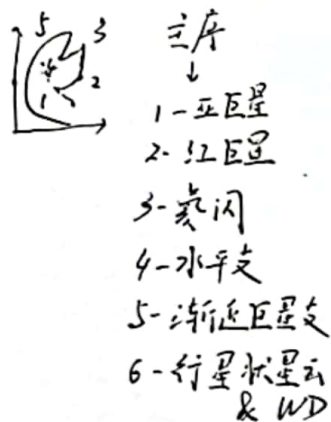 5 3
2
1
主序
↓
1-亚巨星
2-红巨星
3-氦闪
4-水平支
5-渐近巨星支
6-行星状星云
& WD